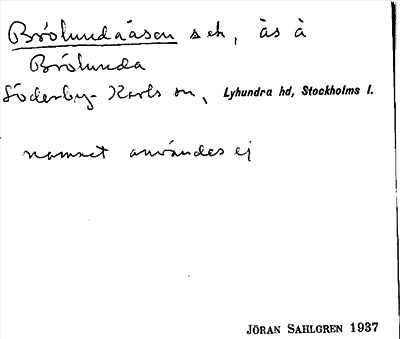 Brölundaåsen sek, ås å
Brölunda
Söderby-Karls sn, Lyhundra hd, Stockholms l.
namnet användes ej
JÖRAN SAHLGREN 1937